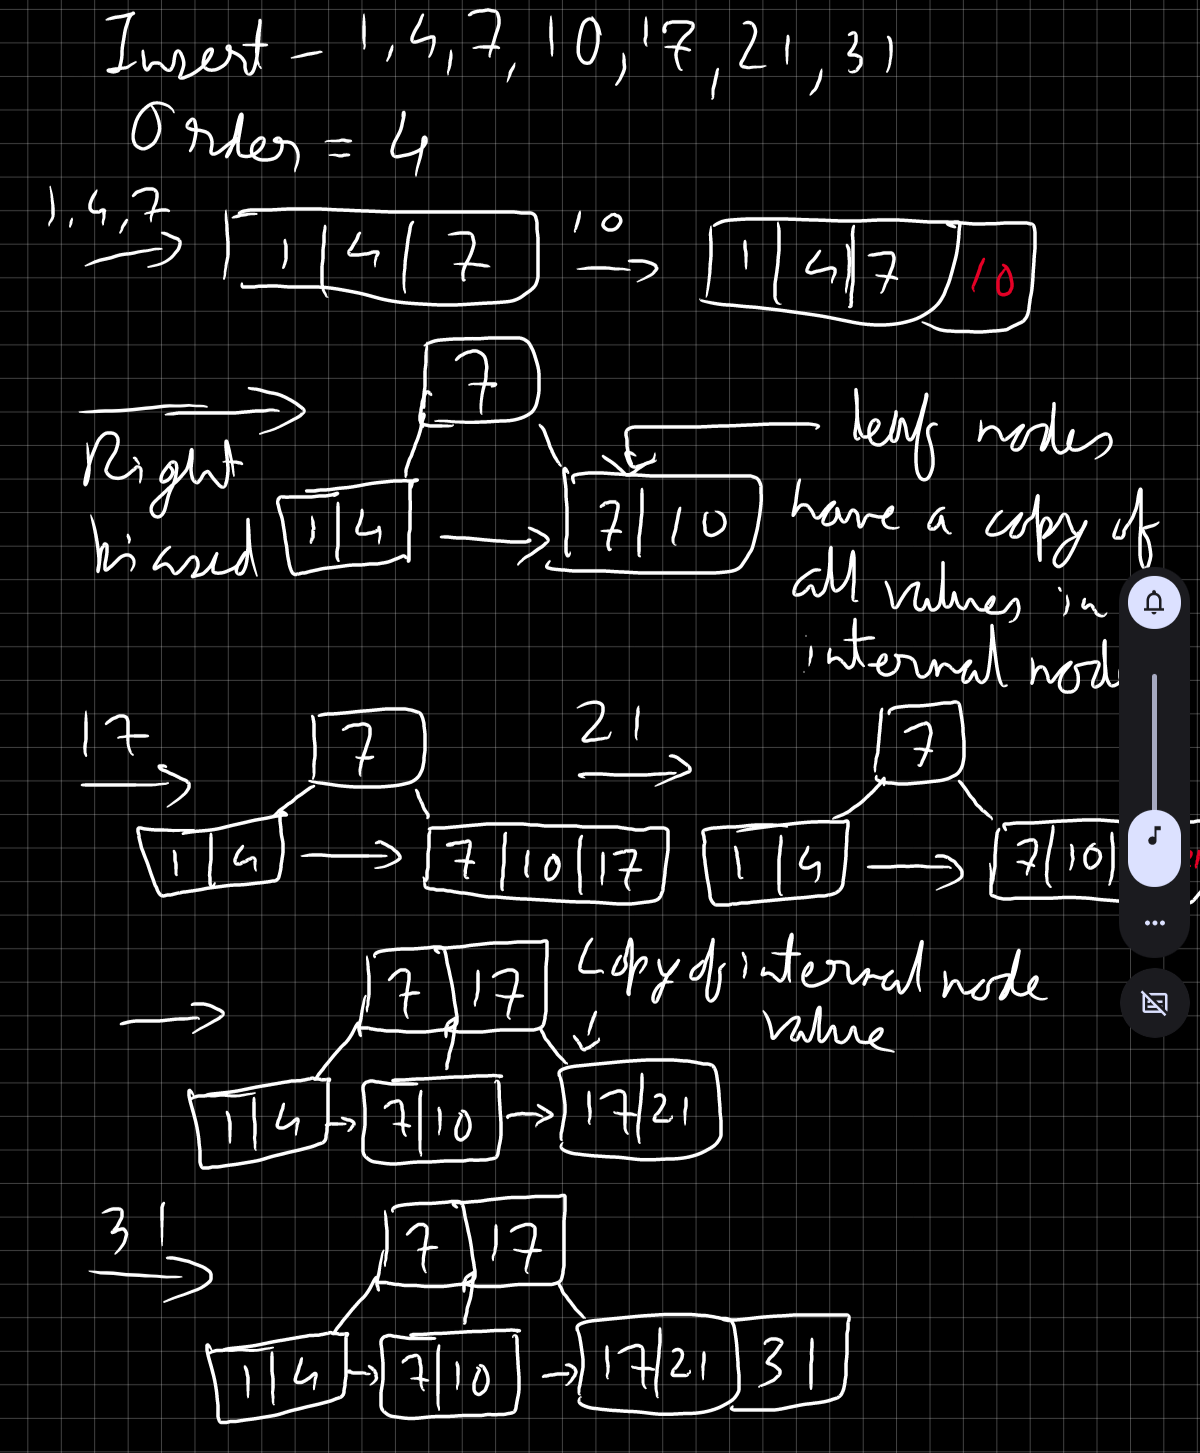 Insert - 1, 4, 7, 10, 17, 21, 31
Order = 4
1, 4, 7
1 4 7
10
1 4 7 10
7
Right
biased
1 4
7 10
leaf nodes
have a copy of
all values in
internal nod
17
7
1 4
7 10 17
21
7
1 4
7 10
7 17
Copy of internal node
value
1 4
7 10
17 21
31
7 17
1 4
7 10
17 21 31